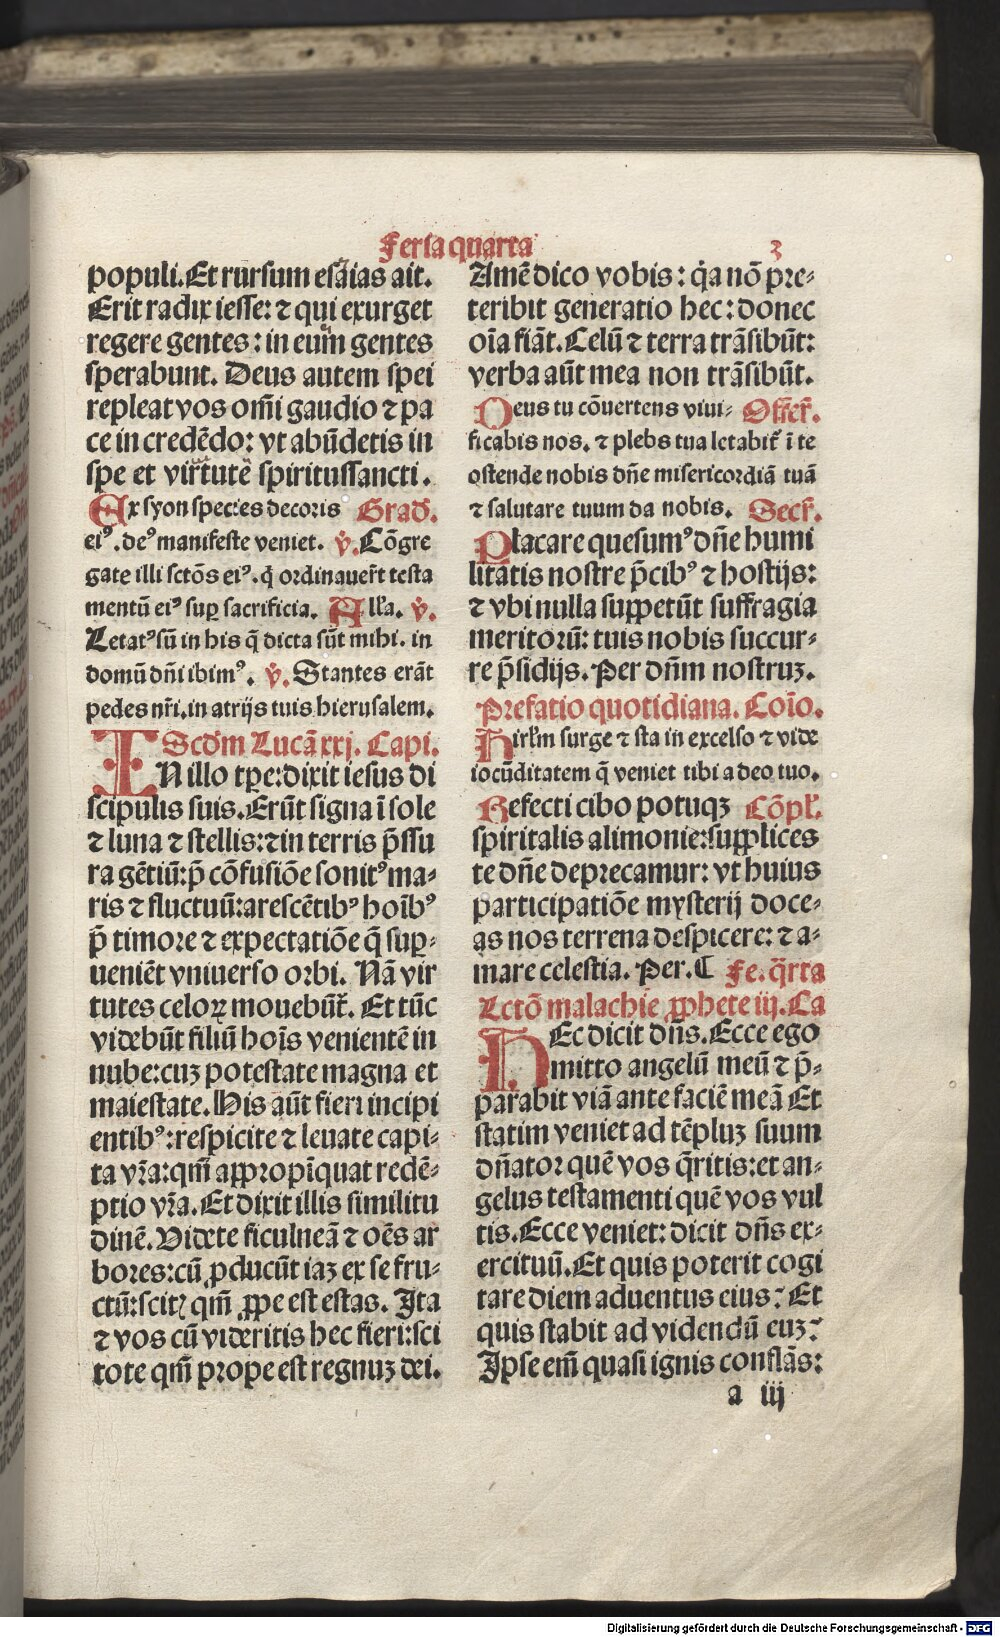 Feria quarta 3
populi. Et rursum esaias ait.
Erit radix iesse: ⁊ qui exurget
regere gentes: in eum gentes
sperabunt. Deus autem spei
repleat vos om̄i gaudio ⁊ pa
ce in credēdo: vt abūdetis in
spe et virtute spiritussancti.
Ex syon species decoris Grad̄.
eiꝰ. deꝰ manifeste veniet. ꝟ. Cōgre
gate illi sctōs eiꝰ. q̇ ordinauer̄t testa
mentū eiꝰ suꝑ sacrificia. All'a. ꝟ.
Letatꝰ sū in his q̄ dicta sūt mihi. in
domū dn̄i ibimꝰ. ꝟ. Stantes erāt
pedes nr̄i. in atrijs tuis hierusalem.
Scd̄m Lucā xxj. Capi.
IN illo tꝑe: dixit iesus di
scipulis suis. Erūt signa ī sole
⁊ luna ⁊ stellis: ⁊ in terris p̄ssu
ra gētiū: p̄ cōfusiōe sonitꝰ ma-
ris ⁊ fluctuū: arescētibꝰ hoībꝰ
p̄ timore ⁊ expectatiōe q̄ suꝑ-
ueniēt vniuerso orbi. Nā vir
tutes celoꝝ mouebūt̄. Et tūc
videbūt filiū hoīs venientē in
nube: cuꝫ potestate magna et
maiestate. His aūt fieri incipi
entibꝰ: respicite ⁊ leuate capi-
ta vr̄a: qm̄ appropīquat redē-
ptio vr̄a. Et dixit illis similitu
dinē. Videte ficulneā ⁊ oēs ar
bores: cū ꝓducūt iaꝫ ex se fru-
ctū: scitꝭ qm̄ ꝓpe est estas. Ita
⁊ vos cū videritis hec fieri: sci
tote qm̄ prope est regnuꝫ dei.
Amē dico vobis: q̇a nō pre-
teribit generatio hec: donec
oīa fiāt. Celū ⁊ terra trāsibūt:
verba aūt mea non trāsibūt.
Deus tu cōuertens viui- Offer̄.
ficabis nos. ⁊ plebs tua letabit̄ ī te
ostende nobis dn̄e misericordiā tuā
⁊ salutare tuum da nobis. Secr̄.
Placare quesumꝰ dn̄e humi
litatis nostre p̄cibꝰ ⁊ hostijs:
⁊ vbi nulla suppetūt suffragia
meritorū: tuis nobis succur-
re p̄sidijs. Per dn̄m nostruꝫ.
Prefatio quotidiana. Coīo.
Hirl'm surge ⁊ sta in excelso ⁊ vide
iocūditatem q̄ veniet tibi a deo tuo.
Refecti cibo potuqꝫ Cōpl'.
spiritalis alimonie: supplices
te dn̄e deprecamur: vt huius
participatiōe mysterij doce-
as nos terrena despicere: ⁊ a-
mare celestia. Per. ¶ Fe. q̄rta
Lctō malachie ꝓphete iij. Ca
HEc dicit dn̄s. Ecce ego
mitto angelū meū ⁊ p̄-
parabit viā ante faciē meā Et
statim veniet ad tēpluꝫ suum
dn̄ator quē vos q̄ritis: et an-
gelus testamenti quē vos vul
tis. Ecce veniet: dicit dn̄s ex-
ercituū. Et quis poterit cogi
tare diem aduentus eius: Et
quis stabit ad videndū euꝫ:
Ipse em̄ quasi ignis conflās:
a iij
Digitalisierung gefördert durch die Deutsche Forschungsgemeinschaft - DFG